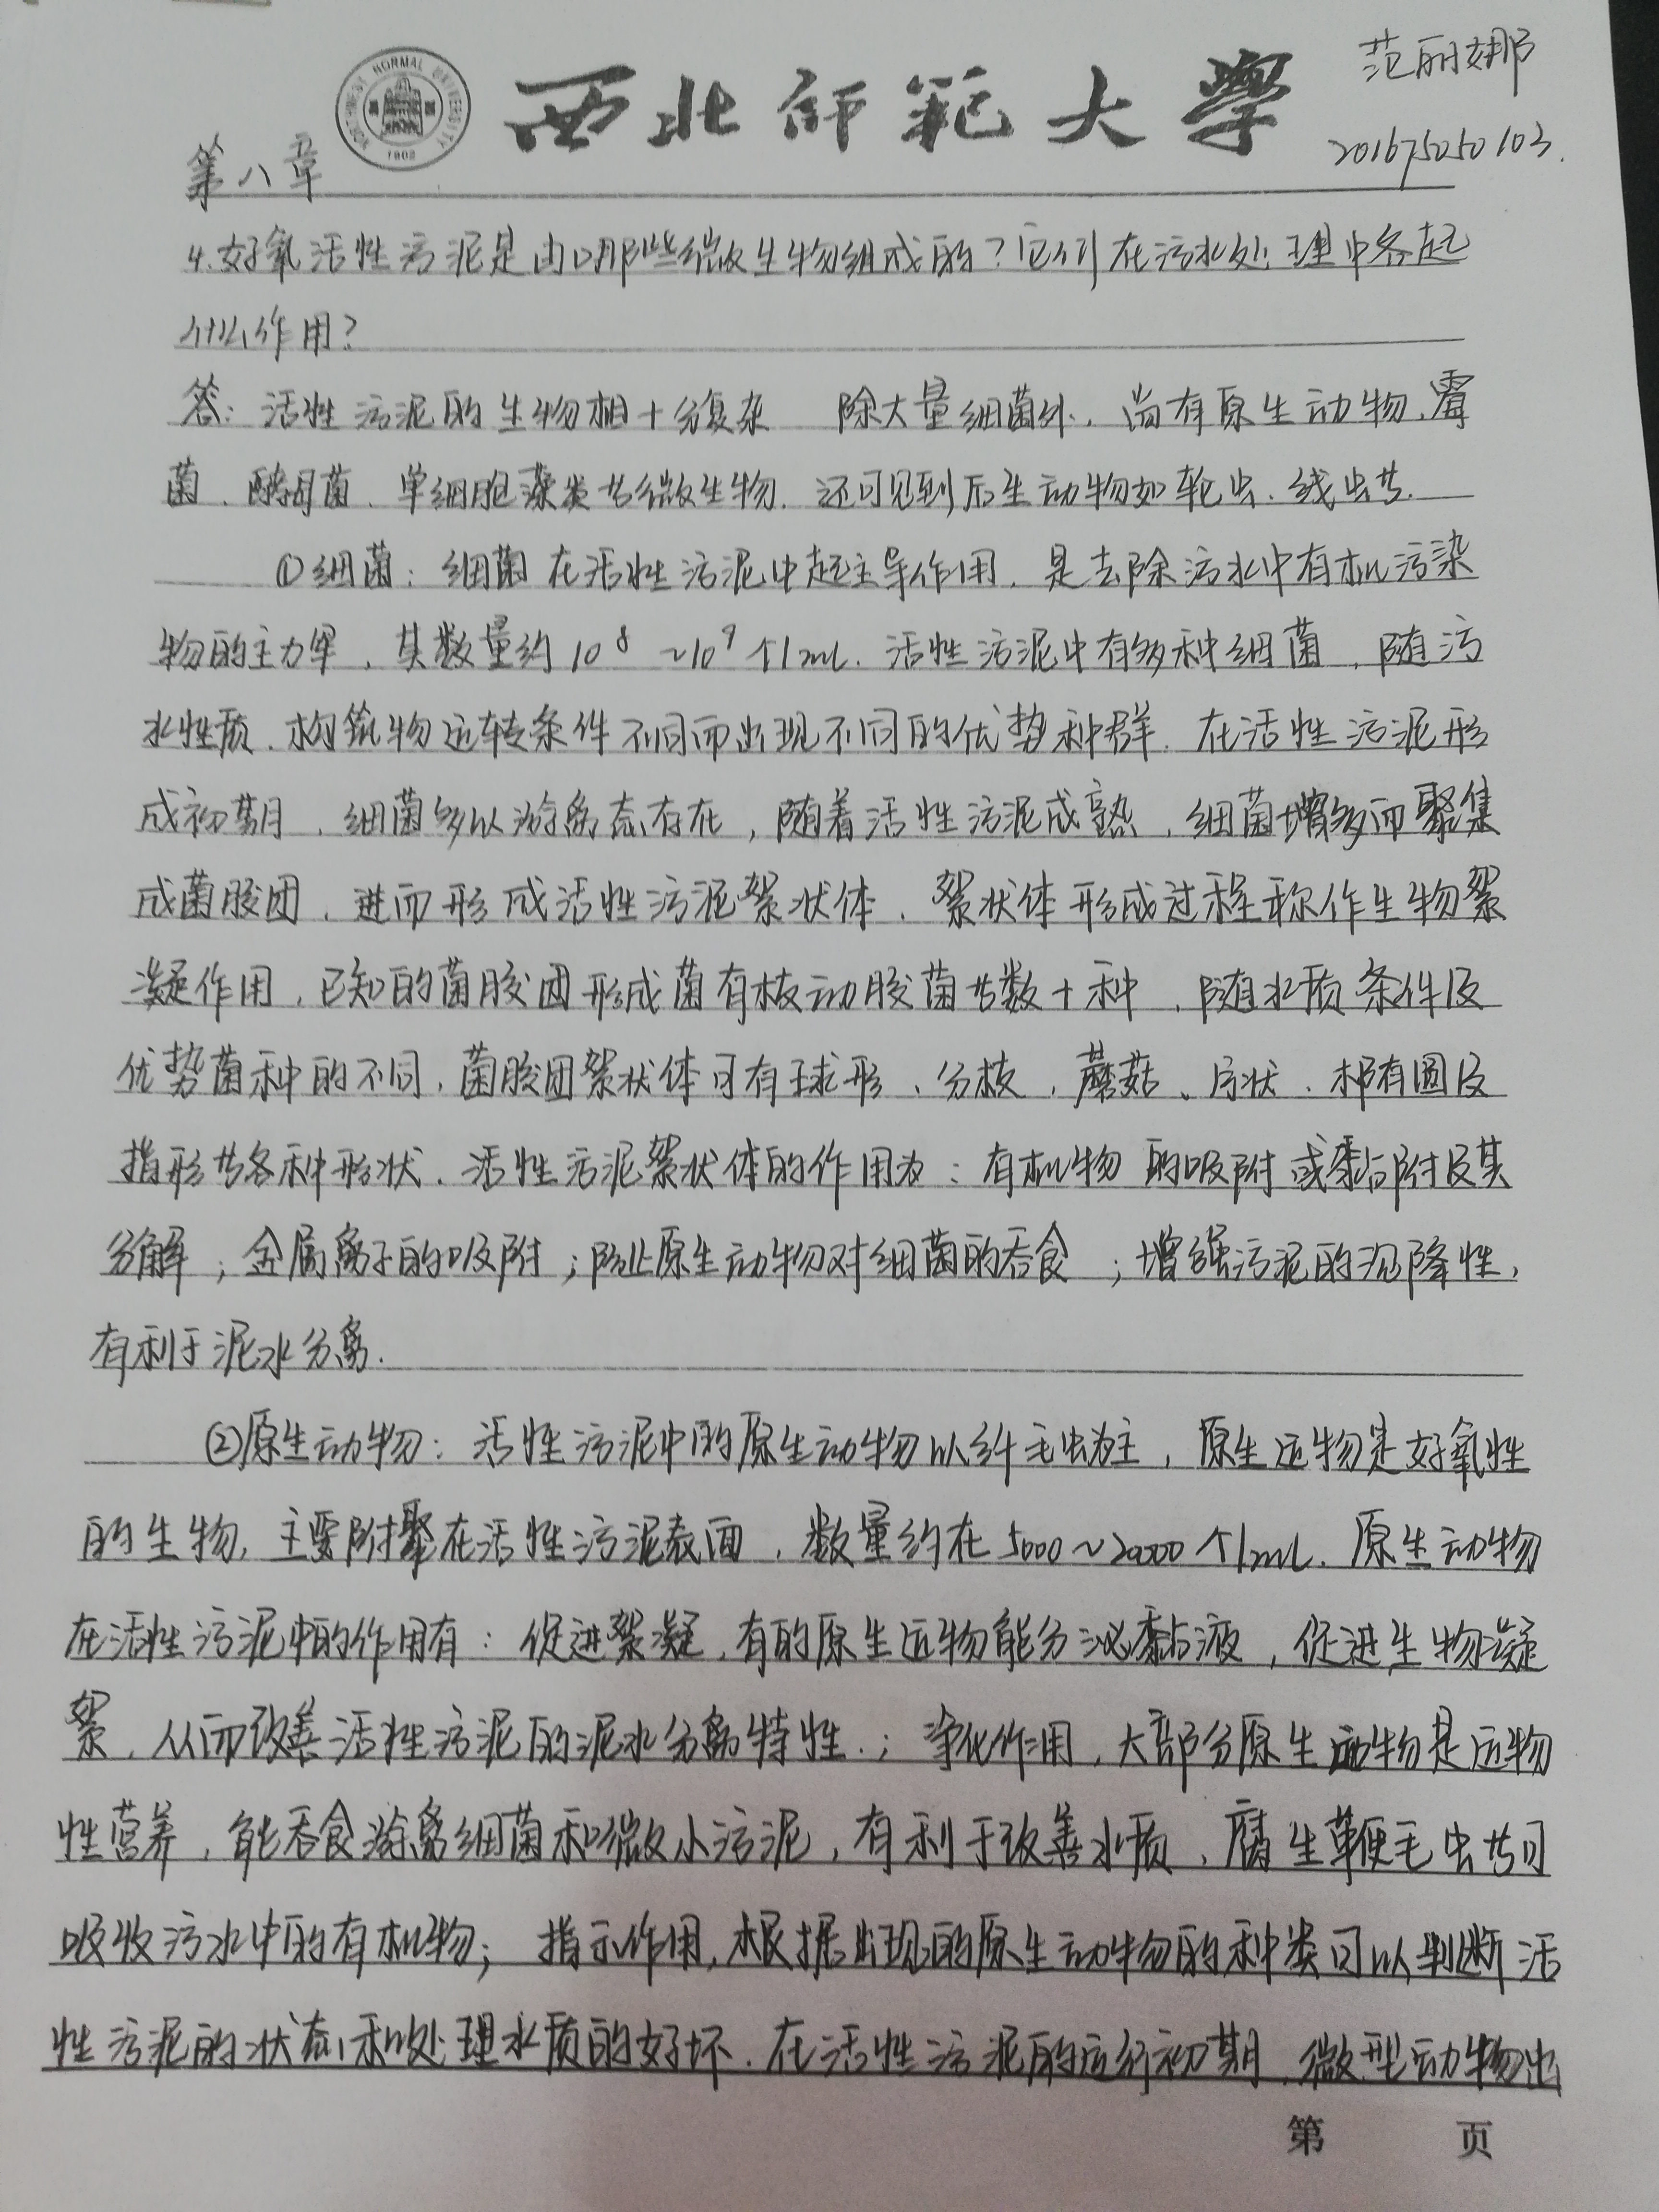 范丽娜
西北师范大学
NORTHWEST NORMAL UNIVERSITY
1902
201675050103.
第八章
4.好氧活性污泥是由哪些微生物组成的?它们在污水处理中各起
什么作用?
答:活性污泥的生物相十分复杂 除大量细菌外,尚有原生动物、霉
菌、酵母菌、单细胞藻类等微生物.还可见到后生动物如轮虫、线虫等.
①细菌:细菌在活性污泥中起主导作用,是去除污水中有机污染
物的主力军,其数量约10⁸~10⁹个/mL.活性污泥中有多种细菌,随污
水性质、构筑物运转条件不同而出现不同的优势种群.在活性污泥形
成初期,细菌多以游离态存在,随着活性污泥成熟,细菌增多而聚集
成菌胶团,进而形成活性污泥絮状体,絮状体形成过程称作生物絮
凝作用,已知的菌胶团形成菌有枝动胶菌等数十种,随水质条件及
优势菌种的不同,菌胶团絮状体可有球形、分枝,蘑菇、片状、椭圆及
指形等各种形状.活性污泥絮状体的作用为:有机物的吸附或黏附及其
分解;金属离子的吸附;防止原生动物对细菌的吞食;增强污泥的沉降性,
有利于泥水分离.
②原生动物:活性污泥中的原生动物以纤毛虫为主,原生动物是好氧性
的生物,主要附聚在活性污泥表面,数量约在5000~20000个/mL.原生动物
在活性污泥中的作用有:促进絮凝,有的原生动物能分泌黏液,促进生物凝
絮,从而改善活性污泥的泥水分离特性.;净化作用,大部分原生动物是动物
性营养,能吞食游离细菌和微小污泥,有利于改善水质,腐生鞭毛虫等可
吸收污水中的有机物;指示作用,根据出现的原生动物的种类可以判断活
性污泥的状态和处理水质的好坏.在活性污泥的运行初期,微型动物出
第 页